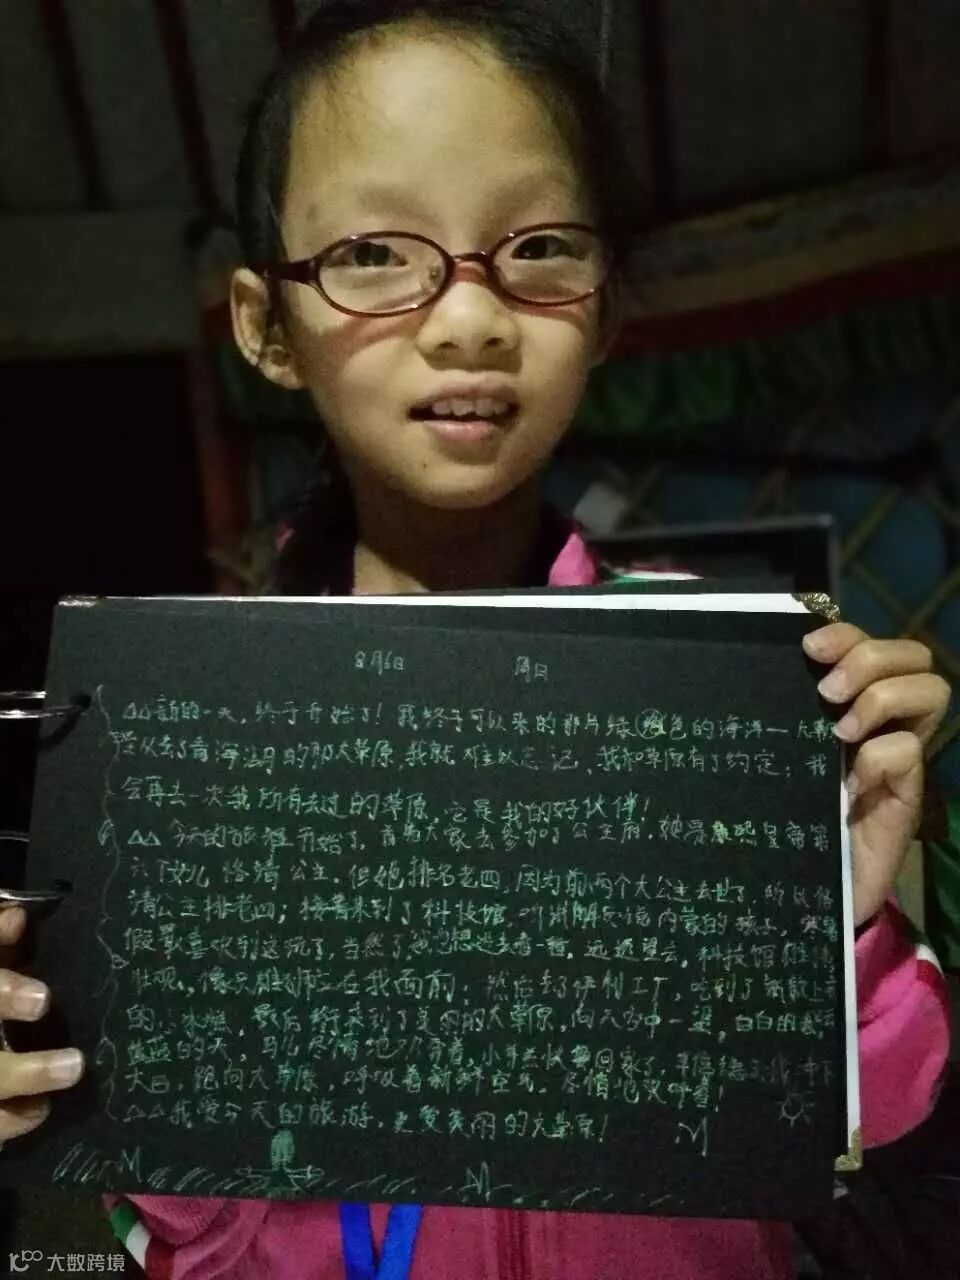 8月6日 周日
△△新的一天,终于开始了!我终于可以来的那片绿色的海洋一大草
从去了青海湖的那大草原,我就难以忘记,我和草原有了约定;我
会再去一次我所有去过的草原,它是我的好伙伴!
△△今天的旅程开始了,首先大家去参加了公主府,她是康熙皇帝第
六个女儿恪靖公主,但她排名老四,因为前两个大公主去世了,所以恪
靖公主排老四;接着来到了科技馆,听讲解员说内蒙的孩子,寒暑
假最喜欢到这玩了,当然了我也想进去看一番,远远望去,科技馆雄伟
壮观,像只雄狮立在我面前;然后去了伊利工厂,吃到了
的小冰糕,最后终于来到了美丽的大草原,向天空中一望,白白的云
蓝蓝的天,马儿尽情地吃着,小羊也快要回家了,
大口,跑向大草原,呼吸着新鲜空气,尽情地欢呼着!
△△我爱今天的旅游,更爱美丽的大草原!
大数跨境